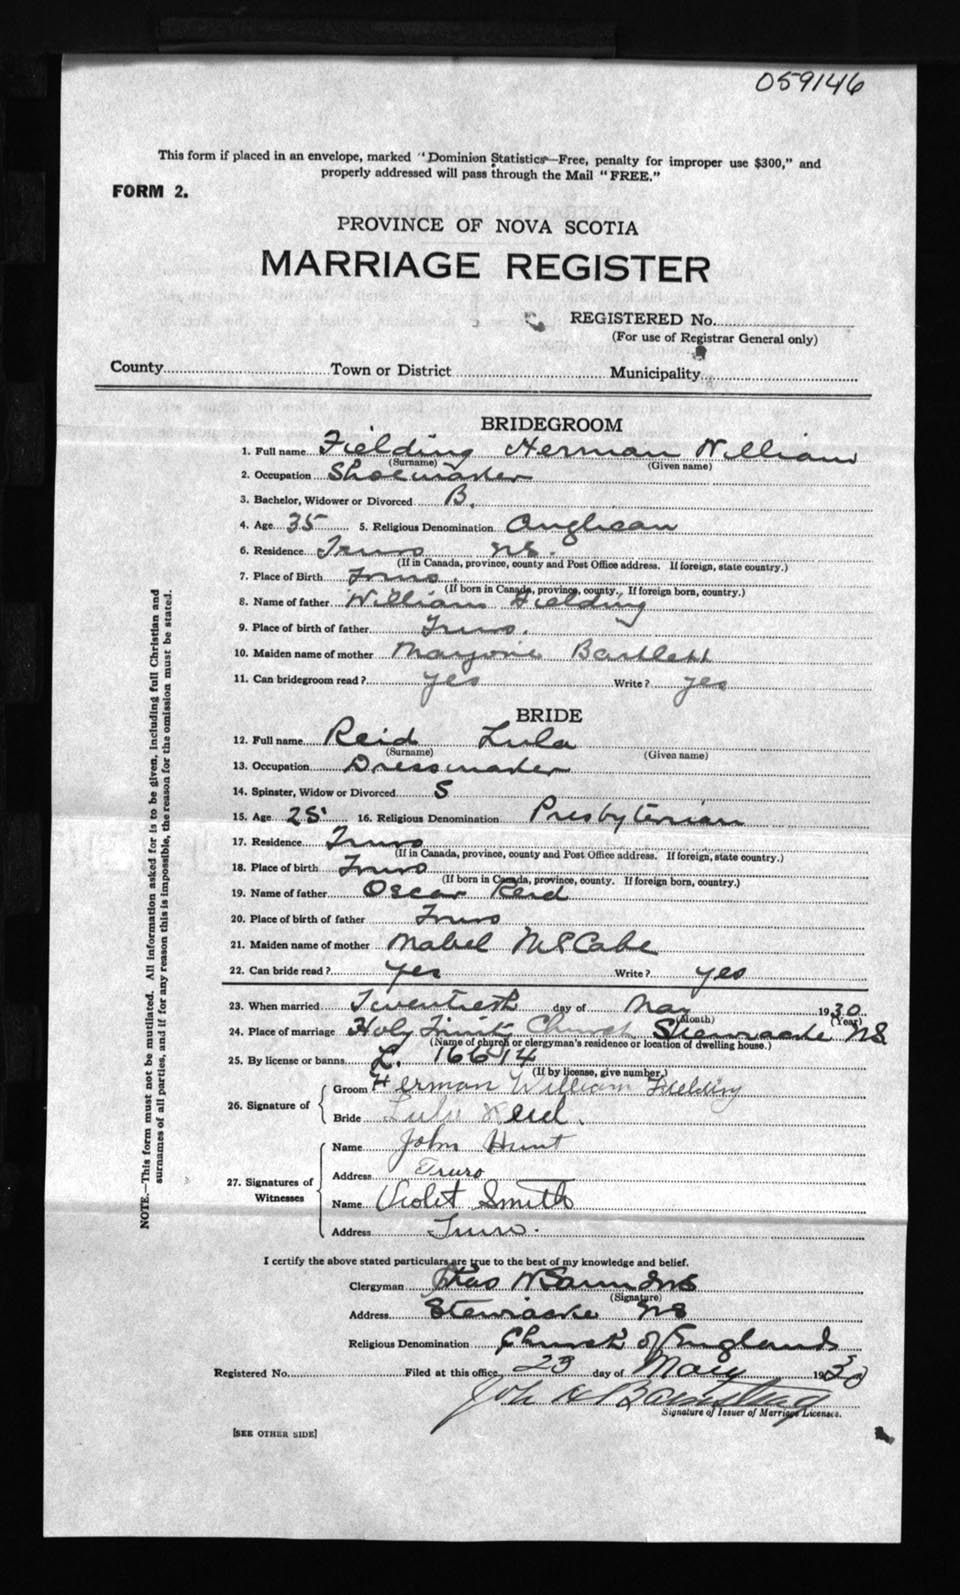 059146
This form if placed in an envelope, marked "Dominion Statistics—Free, penalty for improper use $300," and
properly addressed will pass through the Mail "FREE."
FORM 2.
PROVINCE OF NOVA SCOTIA
MARRIAGE REGISTER
REGISTERED No.
(For use of Registrar General only)
County Town or District Municipality
BRIDEGROOM
1. Full name Fielding Herman William
(Surname) (Given name)
2. Occupation Shoemaker
3. Bachelor, Widower or Divorced B.
4. Age 35 5. Religious Denomination Anglican
6. Residence Truro NS.
(If in Canada, province, county and Post Office address. If foreign, state country.)
7. Place of Birth Truro.
(If born in Canada, province, county. If foreign born, country.)
8. Name of father William Fielding
9. Place of birth of father Truro.
10. Maiden name of mother Marjorie Bartlett
11. Can bridegroom read? yes Write? yes
BRIDE
12. Full name Reid Lula
(Surname) (Given name)
13. Occupation Dressmaker
14. Spinster, Widow or Divorced S
15. Age 25 16. Religious Denomination Presbyterian
17. Residence Truro
(If in Canada, province, county and Post Office address. If foreign, state country.)
18. Place of birth Truro
(If born in Canada, province, county. If foreign born, country.)
19. Name of father Oscar Reid
20. Place of birth of father Truro
21. Maiden name of mother Mabel McCabe
22. Can bride read? yes Write? yes
23. When married Twentieth day of May 1930.
(Month) (Year)
24. Place of marriage Holy Trinity Church Stewiacke NS
(Name of church or clergyman's residence or location of dwelling house.)
25. By license or banns L. 16614
(If by license, give number.)
26. Signature of
Groom Herman William Fielding
Bride Lula Reid.
27. Signatures of Witnesses
Name John Hunt
Address Truro
Name Violet Smith
Address Truro.
I certify the above stated particulars are true to the best of my knowledge and belief.
Clergyman
(Signature)
Address Stewiacke NS
Religious Denomination Church of England
Registered No. Filed at this office 23 day of May 1930
Signature of Issuer of Marriage Licenses.
[SEE OTHER SIDE]
NOTE.—This form must not be mutilated. All information asked for is to be given, including full Christian and
surnames of all parties, and if for any reason this is impossible, the reason for the omission must be stated.